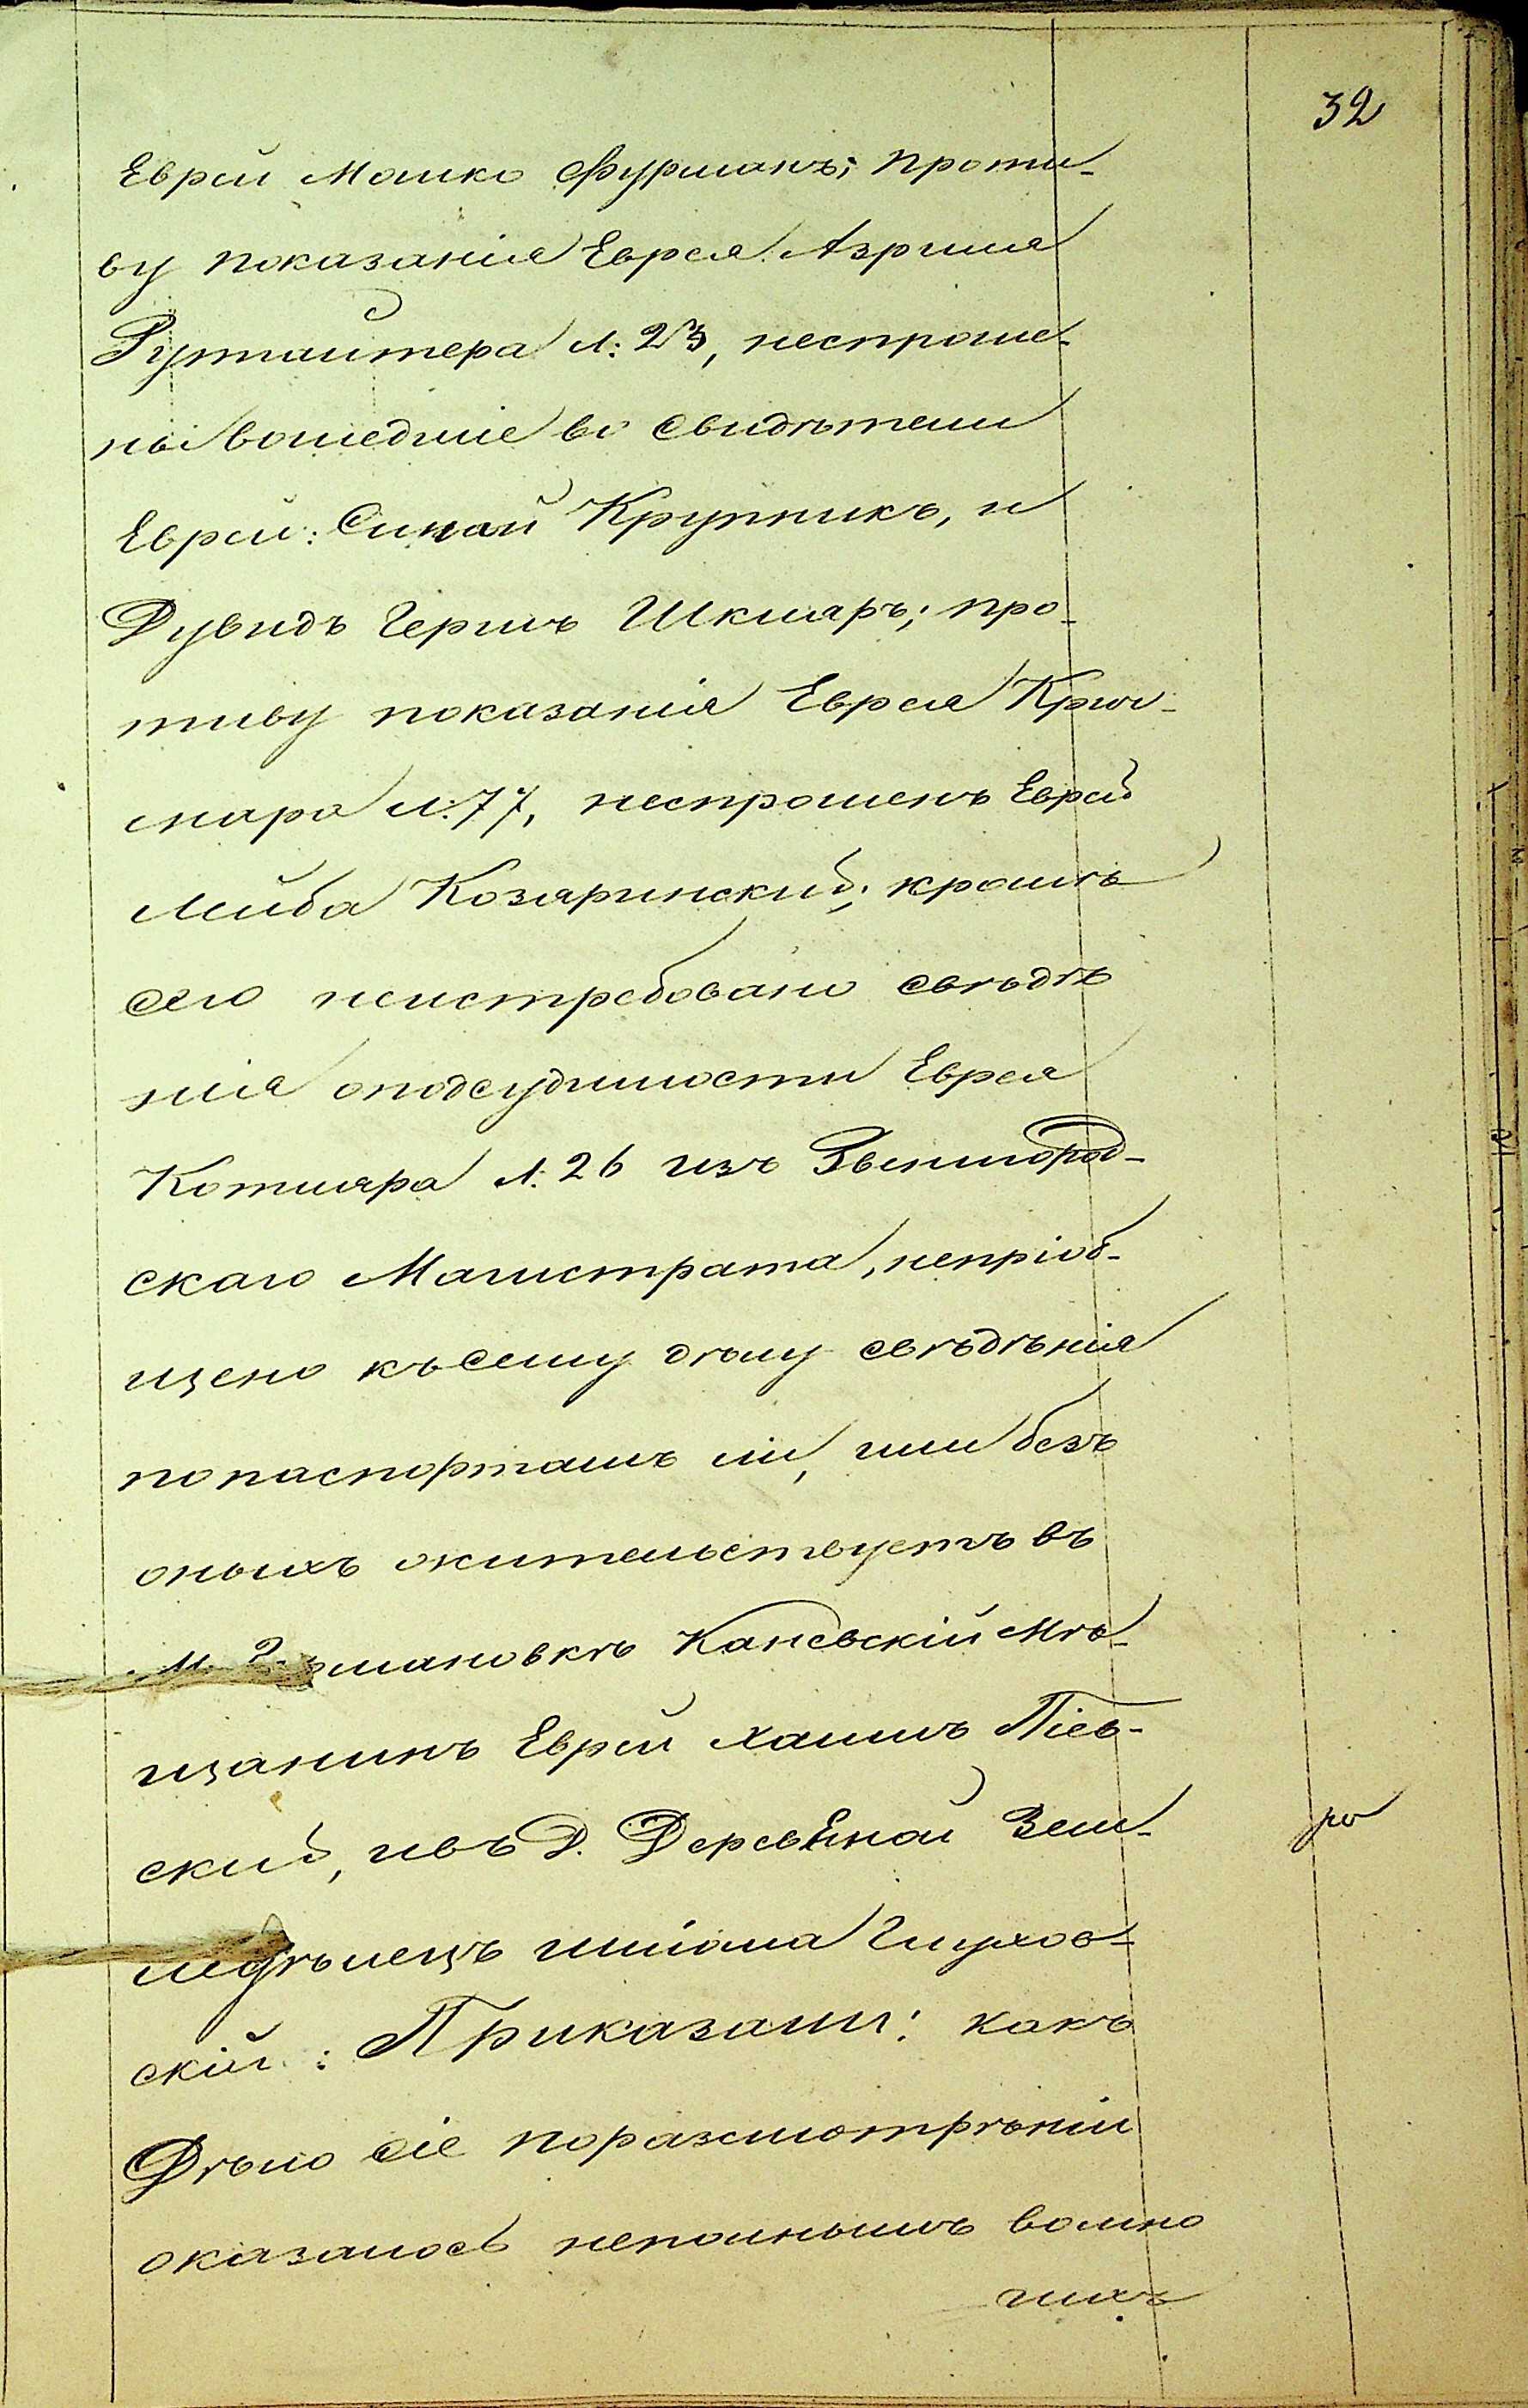 32
Еврей Мошко Фурманъ; проти-
ву показанія Еврея Азрииля
Гутлайтера л: 23, неспроше-
ны вошедшіе во свидѣтели
Евреи: Синай Крупникъ, и
Дувидъ Гершъ Шкляръ; про-
тиву показанія Еврея Крич-
мара л: 77, неспрошенъ Еврей
Лейба Козаринский; кромѣ
сего неистребовано свѣдѣ
нія оподсудимости Еврея
Котляра л: 26 изъ Звенигород-
скаго Магистрата, непріоб-
щено късему дѣлу свѣдѣнія
попаспортамъ ли, или безъ
оныхъ жительствуетъ въ
М. Германовкѣ Каневскій Мѣ-
щанинъ Еврей Хаимъ Піев-
ский, ивъ Д. Деревяной Зем-
ледѣлецъ Шлiома Глухов-
скій: Приказали: какъ
Дѣло сіе поразсмотрѣніи
оказалось неполнымъ вомно
гихъ